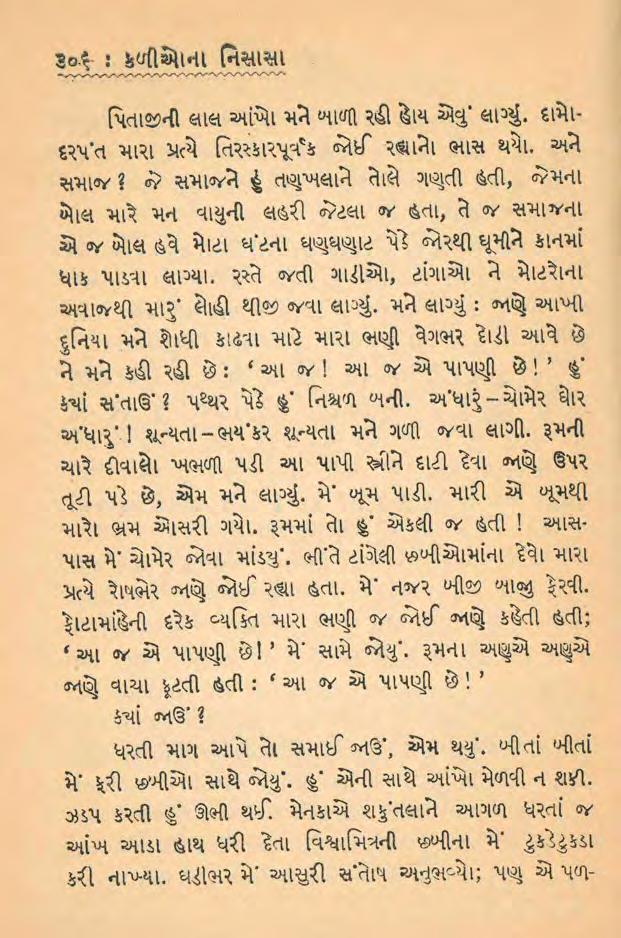 ૩૦૬ : કળીઓના નિસાસા
પિતાજીની લાલ આંખો મને બાળી રહી હોય એવું લાગ્યું. દામો-
દરપંત મારા પ્રત્યે તિરસ્કારપૂર્વક જોઈ રહ્યાનો ભાસ થયો. અને
સમાજ ? જે સમાજને હું તણખલાને તોલે ગણતી હતી, જેમના
બોલ મારે મન વાયુની લહરી જેટલા જ હતા, તે જ સમાજના
એ જ બોલ હવે મોટા ઘંટના ઘણઘણાટ પેઠે જોરથી ઘૂમીને કાનમાં
ધાક પાડવા લાગ્યા. રસ્તે જતી ગાડીઓ, ટાંગાઓ ને મોટરોના
અવાજથી મારું લોહી થીજી જવા લાગ્યું. મને લાગ્યું : જાણે આખી
દુનિયા મને શોધી કાઢવા માટે મારા ભણી વેગભર દોડી આવે છે
ને મને કહી રહી છે : ‘ આ જ ! આ જ એ પાપણી છે ! ’ હું
ક્યાં સંતાઉં ? પથ્થર પેઠે હું નિશ્ચળ બની. અંધારું – ચોમેર ઘોર
અંધારું ! શૂન્યતા – ભયંકર શૂન્યતા મને ગળી જવા લાગી. રૂમની
ચારે દીવાલો ખભળી પડી આ પાપી સ્ત્રીને દાટી દેવા જાણે ઉપર
તૂટી પડે છે, એમ મને લાગ્યું. મેં બૂમ પાડી. મારી એ બૂમથી
મારો ભ્રમ ઓસરી ગયો. રૂમમાં તો હું એકલી જ હતી ! આસ-
પાસ મેં ચોમેર જોવા માંડ્યું. ભીંતે ટાંગેલી છબીઓમાંના દેવો મારા
પ્રત્યે રોષભેર જાણે જોઈ રહ્યા હતા. મેં નજર બીજી બાજુ ફેરવી.
ફોટામાંહેની દરેક વ્યક્તિ મારા ભણી જ જોઈ જાણે કહેતી હતી;
‘ આ જ એ પાપણી છે ! ’ મેં સામે જોયું. રૂમના અણુએ અણુએ
જાણે વાચા ફૂટતી હતી : ‘ આ જ એ પાપણી છે ! ’
ક્યાં જાઉં ?
ધરતી માગ આપે તો સમાઈ જાઉં, એમ થયું. બીતાં બીતાં
મેં ફરી છબીઓ સાથે જોયું. હું એની સાથે આંખો મેળવી ન શકી.
ઝડપ કરતી હું ઊભી થઈ. મેનકાએ શકુંતલાને આગળ ધરતાં જ
આંખ આડા હાથ ધરી દેતા વિશ્વામિત્રની છબીના મેં ટુકડેટુકડા
કરી નાખ્યા. ઘડીભર મેં આસુરી સંતોષ અનુભવ્યો; પણ એ પળ-